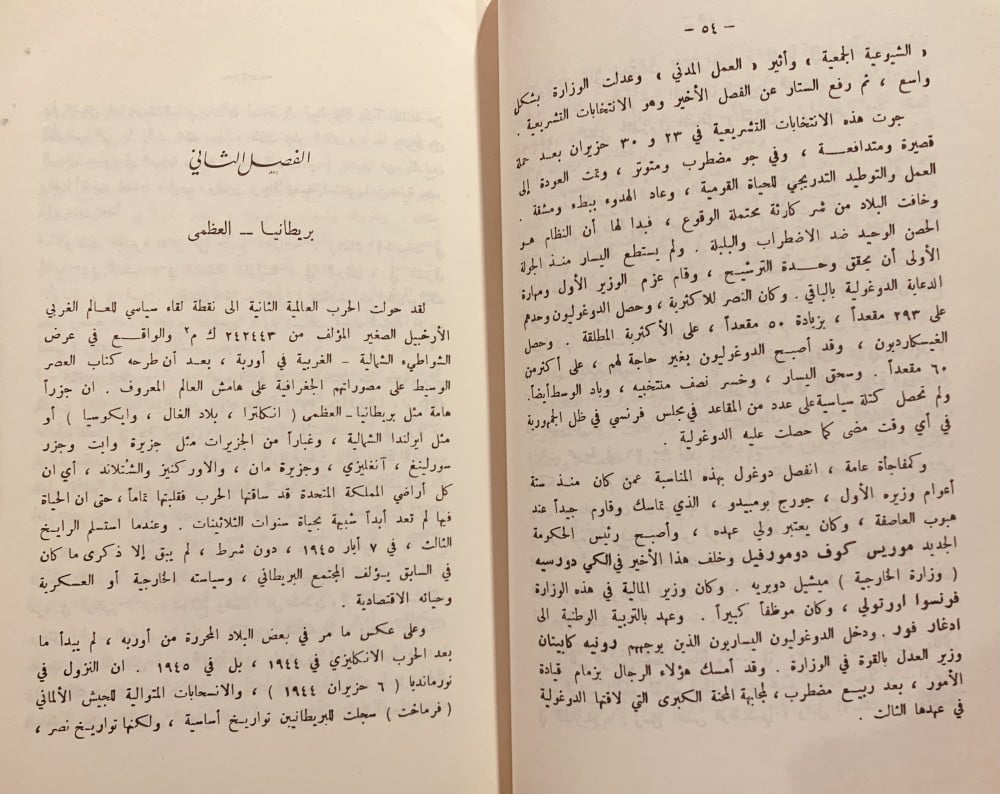 — ٥٤ —
« الشيوعية الجمعية » وأثير « العمل المدني » وعدلت الوزارة بشكل
واسع ، ثم رفع الستار عن الفصل الأخير وهو الانتخابات التشريعية .
جرت هذه الانتخابات التشريعية في ٢٣ و ٣٠ حزيران بعد حملة
قصيرة ومتدافعة ، وفي جو مضطرب ومتوتر ، وتمت العودة إلى
العمل والتوطيد التدريجي للحياة القومية ، وعاد الهدوء ببطء ومشقة .
وخافت البلاد من شر كارثة محتملة الوقوع ، فبدا لها أن النظام هو
الحصن الوحيد ضد الاضطراب والبلبلة . ولم يستطع اليسار منذ الجولة
الأولى أن يحقق وحدة الترشيح ، وقام عزم الوزير الأول ومهارة
الدعاية الدوغولية بالباقي . وكان النصر للأكثرية ، وحصل الدوغوليون وحدهم
على ٢٩٣ مقعداً ، بزيادة ٥٠ مقعداً ، على الأكثرية المطلقة . وحصل
الغيسكارديون ، وقد أصبح الدوغوليون بغير حاجة لهم ، على أكثر من
٦٠ مقعداً . وسحق اليسار ، وخسر نصف منتخبيه ، وباد الوسط أيضاً.
ولم تحصل كتلة سياسية على عدد من المقاعد في مجلس فرنسي في ظل الجمهورية
في أي وقت مضى كما حصلت عليه الدوغولية .
وكمفاجأة عامة ، انفصل دوغول بهذه المناسبة عمن كان منذ ستة
أعوام وزيره الأول ، جورج بومبيدو ، الذي تماسك وقاوم جيداً عند
هبوب العاصفة ، وكان يعتبر ولي عهده ، وأصبح رئيس الحكومة
الجديد موريس كوف دومورفيل وخلف هذا الأخير في الكي دورسيه
( وزارة الخارجية ) ميشيل دوبريه . وكان وزير المالية في هذه الوزارة
فرنسوا اورتولي ، وكان موظفاً كبيراً . وعهد بالتربية الوطنية الى
ادغار فور . ودخل الدوغوليون اليساريون الذين يوجههم رونيه كابيتان
وزير العدل بالقرة في الوزارة . وقد أمسك هؤلاء الرجال بزمام قيادة
الأمور ، بعد ربيع مضطرب ، لمجابهة المحنة الكبرى التي لاقتها الدوغولية
في عهدها الثالث .
الفصل الثاني
بريطانيا — العظمى
لقد حولت الحرب العالمية الثانية الى نقطة لقاء سياسي للعالم الغربي
الأرخبيل الصغير المؤلف من ٢٤٢٤٤٣ ك م٢ والواقع في عرض
الشواطيء الشمالية – الغربية في أوربة ، بعد أن طرحه كتاب العصر
الوسيط على مصوراتهم الجغرافية على هامش العالم المعروف . ان جزراً
هامة مثل بريطانيا – العظمى ( انكلترا ، بلاد الغال ، وايكوسيا ) أو
مثل ايرلندا الشمالية ، وغباراً من الجزيرات مثل جزيرة وايت وجزر
سورلينغ ، آنغليزي ، وجزيرة مان ، والاوركنيز والشتلاند ، أي ان
كل أراضي المملكة المتحدة قد ساقتها الحرب فقلبتها تماماً ، حتى ان الحياة
فيها لم تعد أبداً شبيهة بحياة سنوات الثلاثينات . وعندما استسلم الرايخ
الثالث ، في ٧ أيار ١٩٤٥ ، دون شرط ، لم يبق إلا ذكرى ما كان
في السابق يؤلف المجتمع البريطاني ، وسياسته الخارجية أو العسكرية
وحياته الاقتصادية .
وعلى عكس ما مر في بعض البلاد المحررة من أوربه ، لم يبدأ ما
بعد الحرب الانكليزي في ١٩٤٤ ، بل في ١٩٤٥ . ان النزول في
نورمانديا ( ٦ حزيران ١٩٤٤ ) ، والانسحابات المتوالية للجيش الألماني
( فرماخت ) سجلت للبريطانيين تواريخ أساسية ، ولكنها تواريخ نصر ،